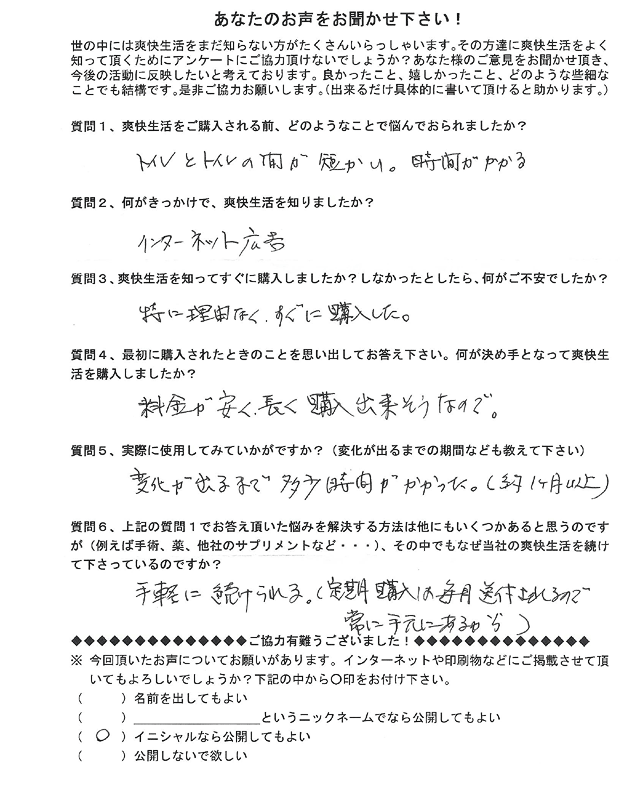 あなたのお声をお聞かせ下さい！
世の中には爽快生活をまだ知らない方がたくさんいらっしゃいます。その方達に爽快生活をよく
知って頂くためにアンケートにご協力頂けないでしょうか？あなた様のご意見をお聞かせ頂き、
今後の活動に反映したいと考えております。良かったこと、嬉しかったこと、どのような些細な
ことでも結構です。是非ご協力お願いします。（出来るだけ具体的に書いて頂けると助かります。）
質問１、爽快生活をご購入される前、どのようなことで悩んでおられましたか？
トイレとトイレの間が短かい。時間がかかる
質問２、何がきっかけで、爽快生活を知りましたか？
インターネット広告
質問３、爽快生活を知ってすぐに購入しましたか？しなかったとしたら、何がご不安でしたか？
特に理由なく、すぐに購入した。
質問４、最初に購入されたときのことを思い出してお答え下さい。何が決め手となって爽快生
活を購入しましたか？
料金が安く、長く購入出来そうなので。
質問５、実際に使用してみていかがですか？（変化が出るまでの期間なども教えて下さい）
変化が出るまで多少時間がかかった。（約1ヶ月以上）
質問６、上記の質問１でお答え頂いた悩みを解決する方法は他にもいくつかあると思うのです
が（例えば手術、薬、他社のサプリメントなど・・・）、その中でもなぜ当社の爽快生活を続け
て下さっているのですか？
手軽に続けられる。（定期購入は毎月送付されるので
常に手元にあるから）
◆◆◆◆◆◆◆◆◆◆◆◆◆◆ご協力有難うございました！◆◆◆◆◆◆◆◆◆◆◆◆◆◆
※ 今回頂いたお声についてお願いがあります。インターネットや印刷物などにご掲載させて頂
いてもよろしいでしょうか？下記の中から〇印をお付け下さい。
（　　）名前を出してもよい
（　　）＿＿＿＿＿＿＿＿というニックネームでなら公開してもよい
（　〇　）イニシャルなら公開してもよい
（　　）公開しないで欲しい